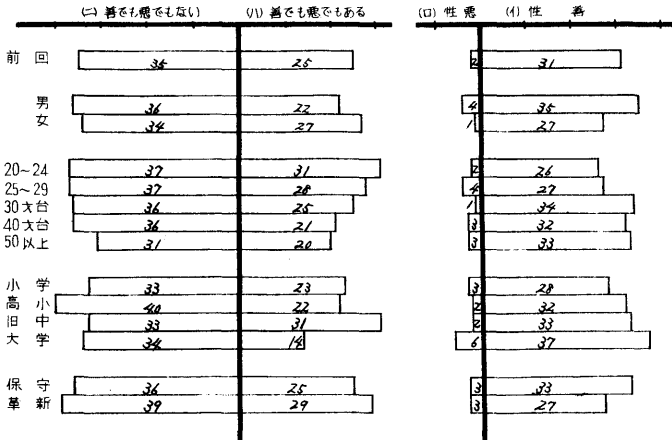 (ニ) 善でも悪でもない (ハ) 善でも悪でもある (ロ) 性悪 (イ) 性善
前回 35 25 2 31
男 36 22 4 35
女 34 27 1 27
20~24 37 31 2 26
25~29 37 28 4 27
30才台 36 25 1 34
40才台 36 21 3 32
50以上 31 20 3 33
小学 33 23 3 28
高小 40 22 2 32
旧中 33 31 2 33
大学 34 14 6 37
保守 36 25 3 33
革新 39 29 3 27